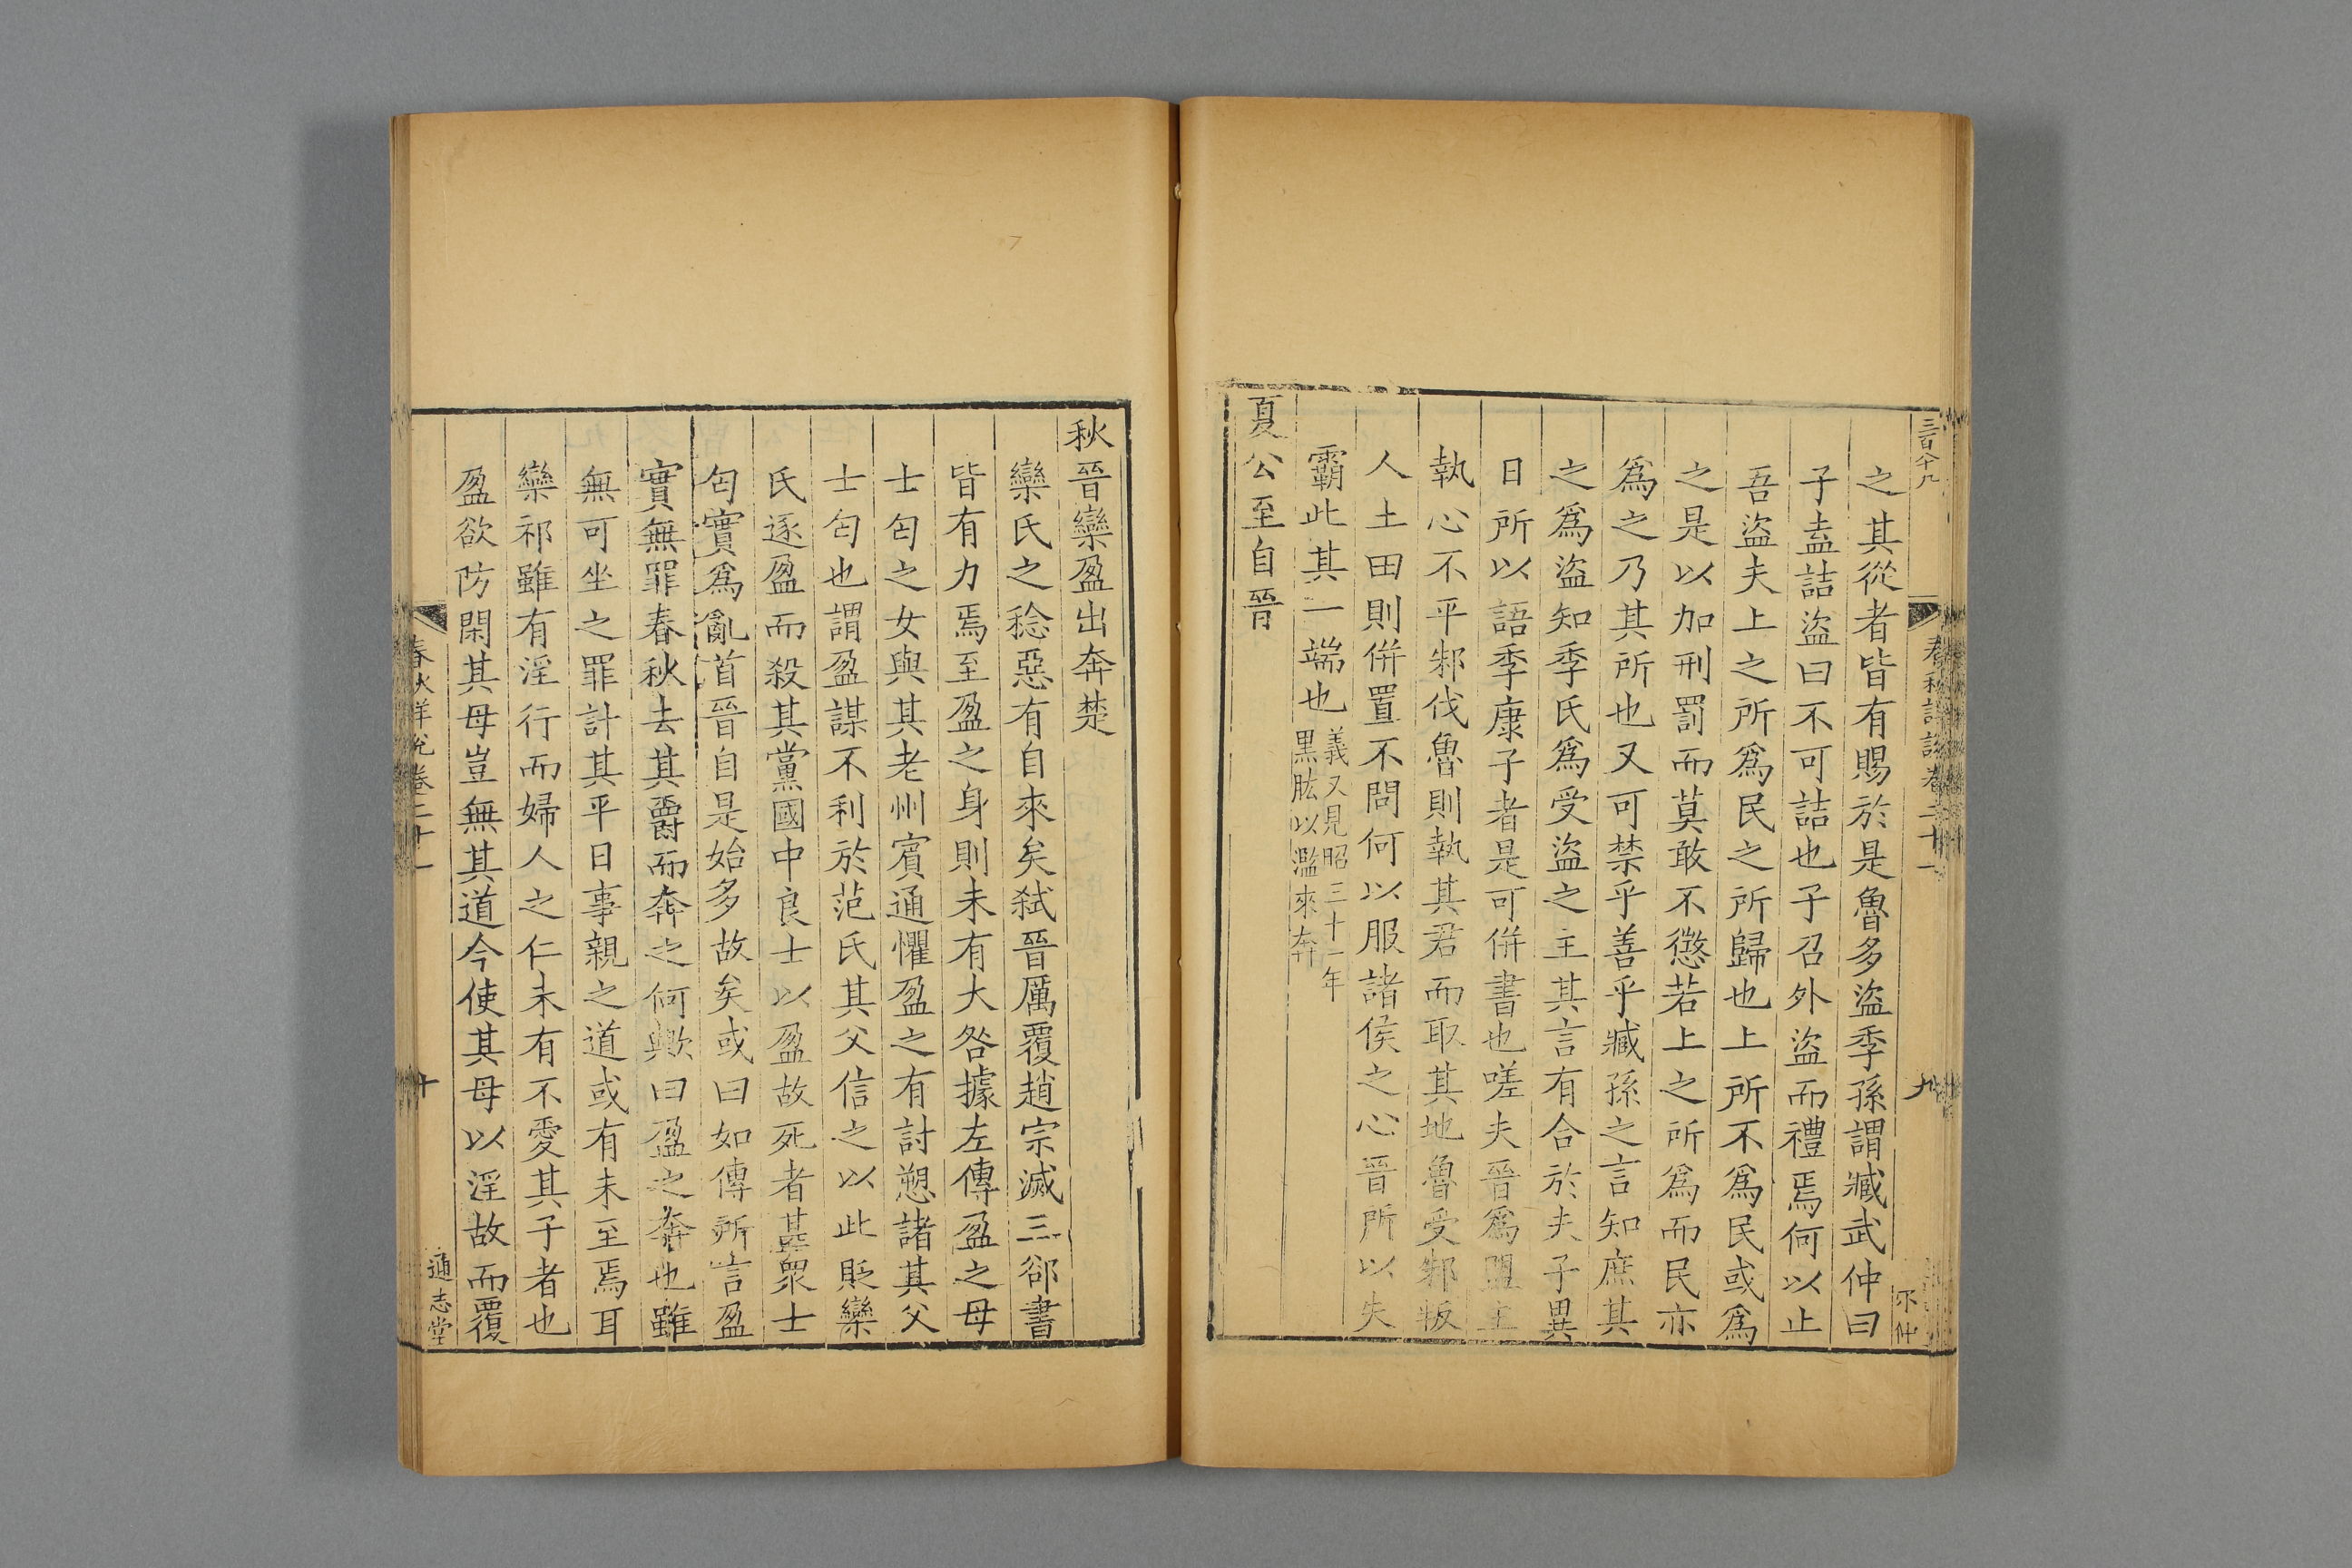 三百六十九
春秋詳說卷二十一
九
之其從者皆有賜於是魯多盜季孫謂臧武仲曰
子盍詰盜曰不可詰也子召外盜而禮焉何以止
吾盜夫上之所爲民之所歸也上所不爲民或爲
之是以加刑罰而莫敢不懲若上之所爲而民亦
爲之乃其所也又可禁乎善乎臧孫之言知庶其
之爲盜知季氏爲受盜之主其言有合於夫子異
日所以語季康子者是可併書也嗟夫晉爲盟主
執心不平邾伐魯則執其君而取其地魯受邾叛
人土田則併置不問何以服諸侯之心晉所以失
霸此其一端也
義又見昭三十一年
黑肱以濫來奔
夏公至自晉
秋晉欒盈出奔楚
欒氏之稔惡有自來矣弒晉厲覆趙宗滅三郤書
皆有力焉至盈之身則未有大咎據左傳盈之母
士匄之女與其老州賓通懼盈之有討愬諸其父
士匄也謂盈謀不利於范氏其父信之以此貶欒
氏逐盈而殺其黨國中良士以盈故死者甚眾士
匄實爲亂首晉自是始多故矣或曰如傳所言盈
實無罪春秋去其爵而奔之何歟曰盈之奔也雖
無可坐之罪計其平日事親之道或有未至焉耳
欒祁雖有淫行而婦人之仁未有不愛其子者也
盈欲防閑其母豈無其道今使其母以淫故而覆
春秋詳說卷二十一
十
通志堂